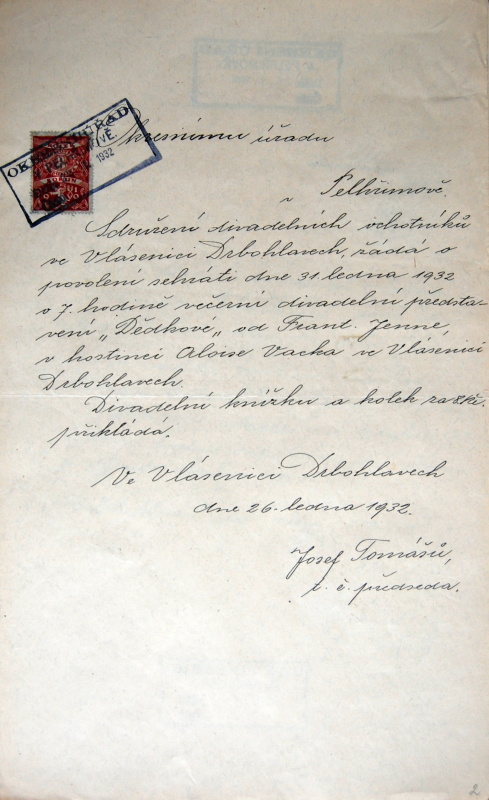 OKRESNÍ ÚŘAD
1932
Okresnímu úřadu
v Pelhřimově.
Sdružení divadelních ochotníků
ve Vlásenici Drbohlavech, žádá o
povolení sehráti dne 31. ledna 1932
o 7. hodině večerní divadelní předsta-
vení „Dědkové„ od Frant. Jenne,
v hostinci Aloise Vacka ve Vlásenici
Drbohlavech.
Divadelní knížku a kolek za 8 Kč.
přikládá.
Ve Vlásenici Drbohlavech
dne 26. ledna 1932.
Josef Tomášů,
t. č. předseda.
2